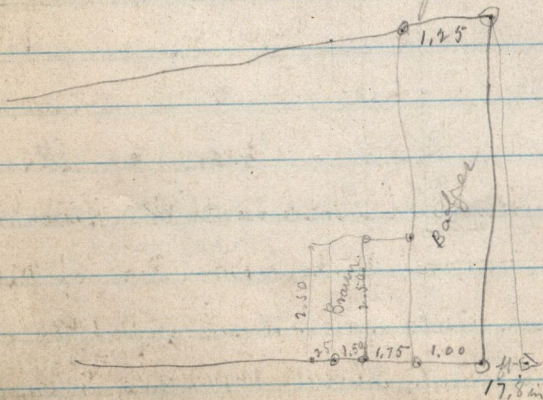 1,25
Badger
2.50
Brown
2.50
25 1.50 1,75 1.00 ft
17,8 in